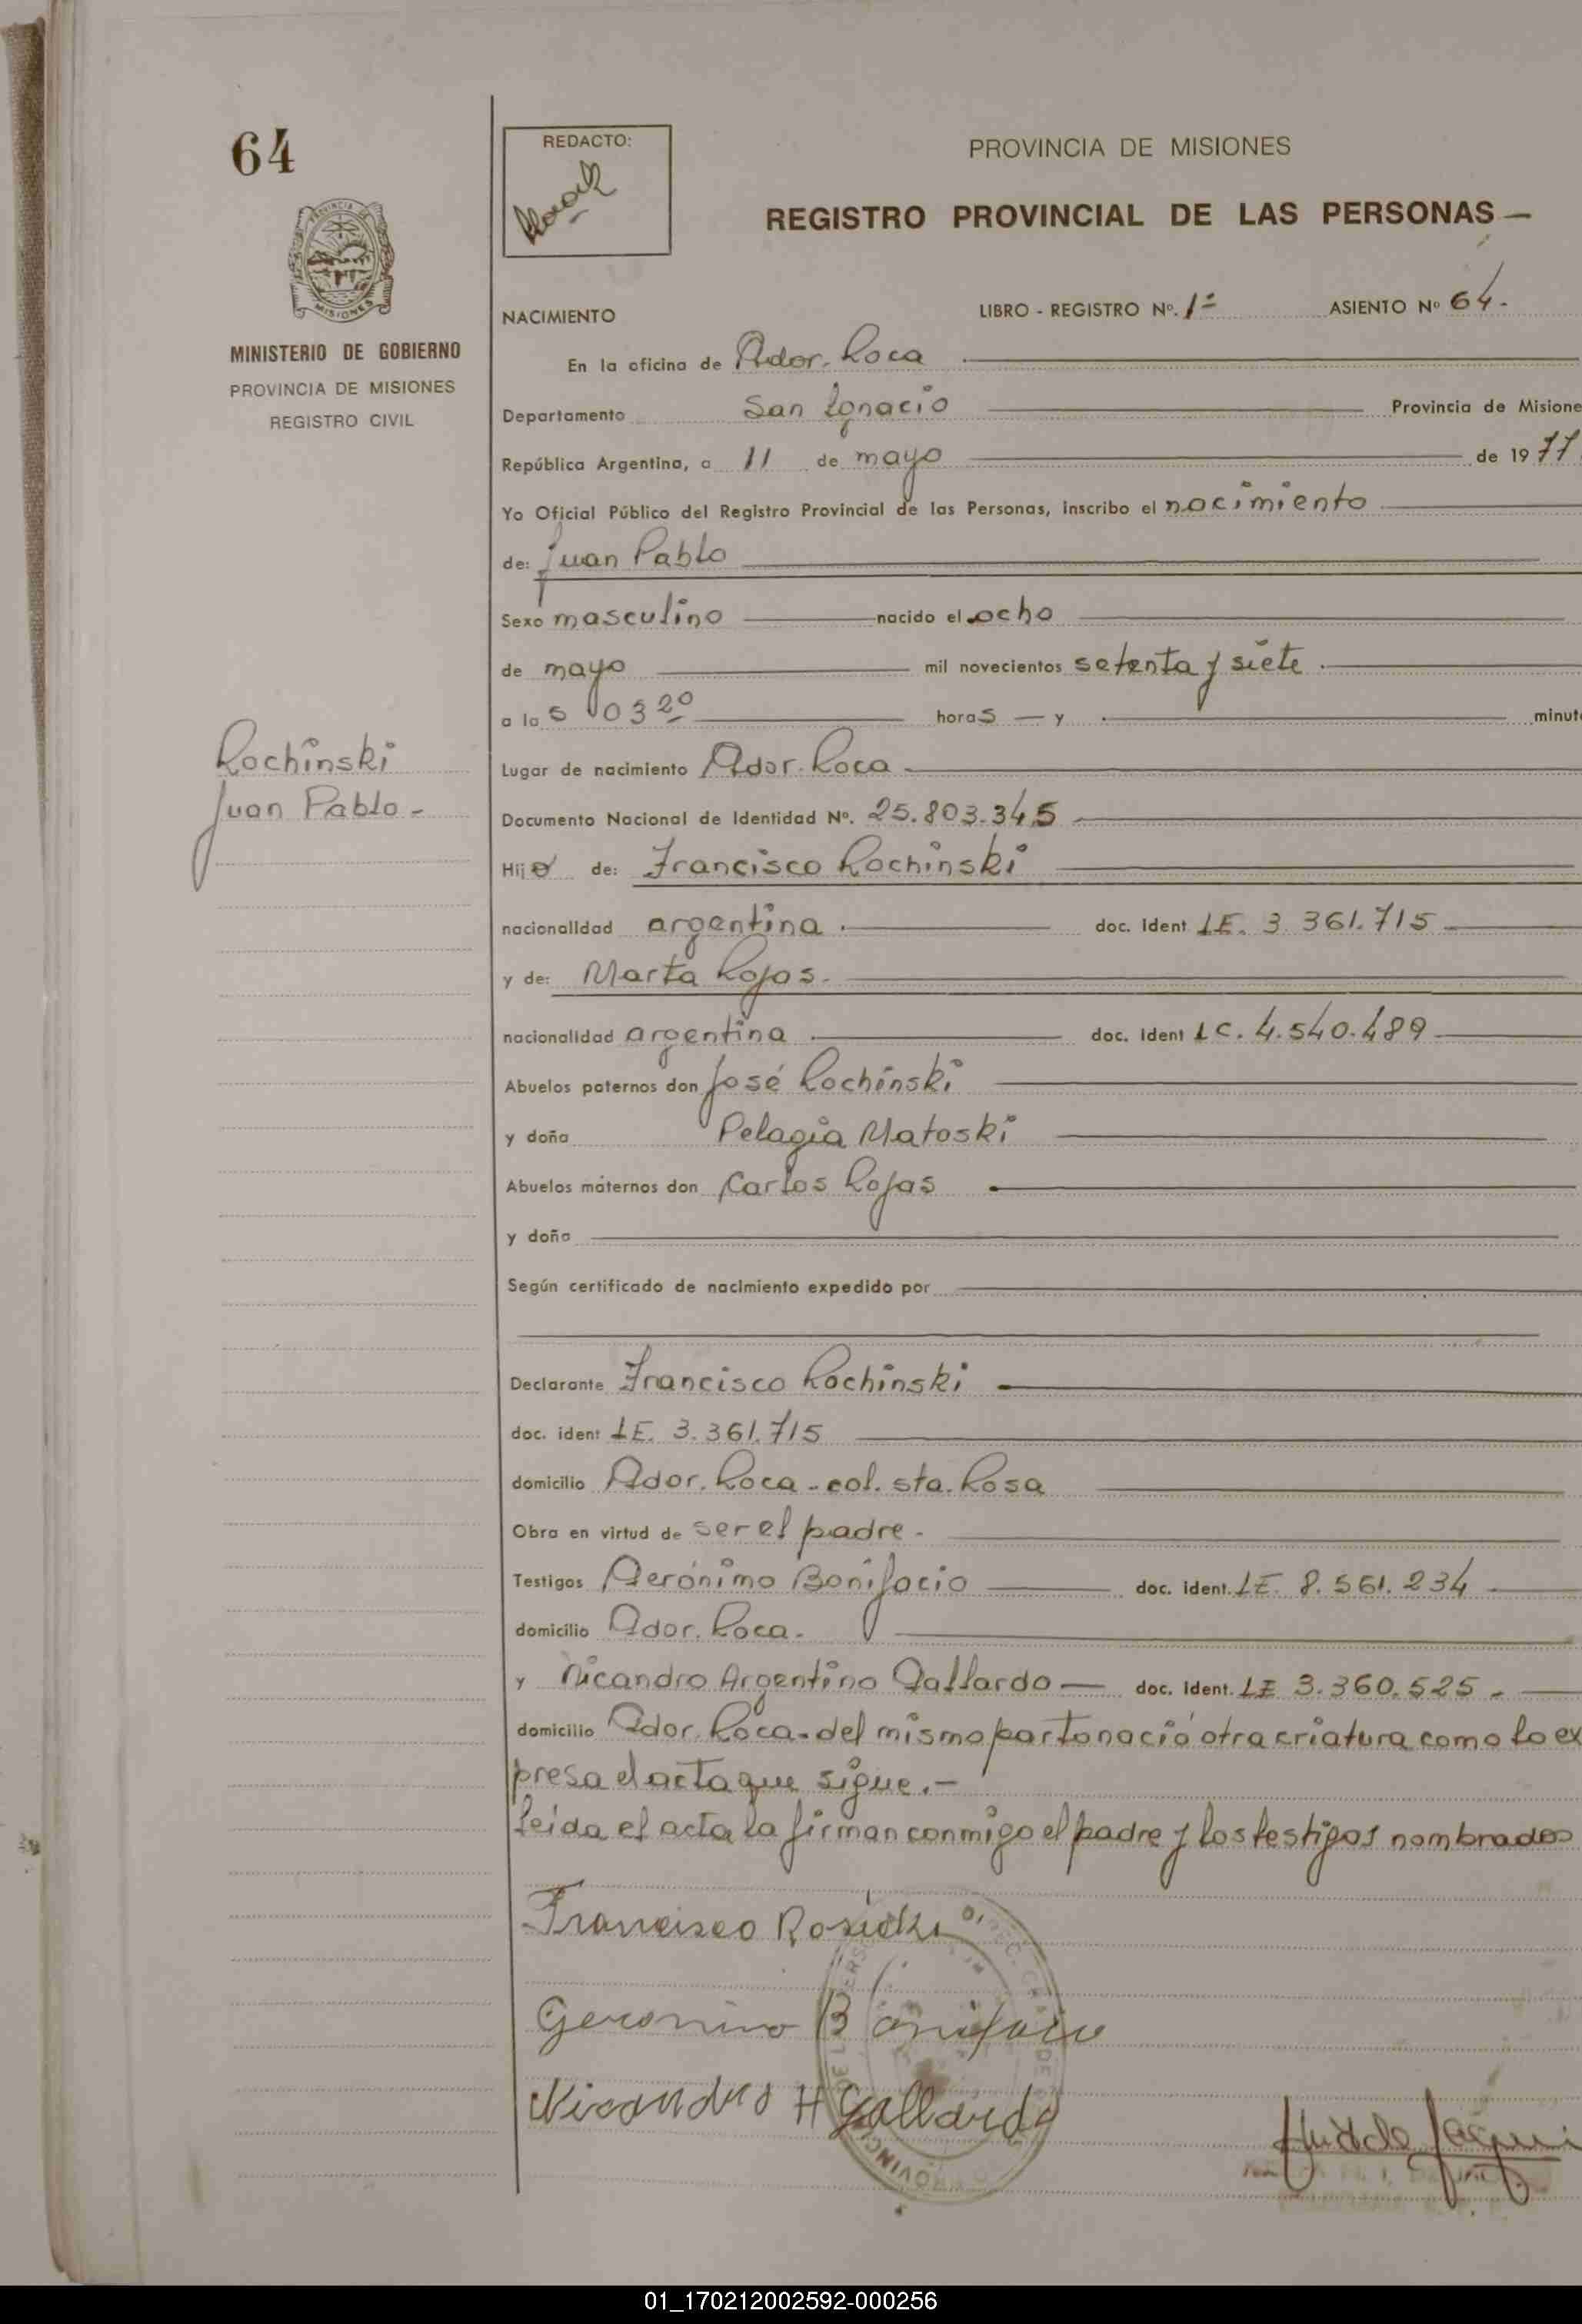 64
REDACTO:
PROVINCIA DE MISIONES
REGISTRO PROVINCIAL DE LAS PERSONAS —
PROVINCIA DE
MISIONES
MINISTERIO DE GOBIERNO
PROVINCIA DE MISIONES
REGISTRO CIVIL
NACIMIENTO LIBRO - REGISTRO Nº. 1º ASIENTO Nº 64.-
En la oficina de Ador. Roca
Departamento San Ignacio Provincia de Misione
República Argentina, a 11 de mayo de 1977
Yo Oficial Público del Registro Provincial de las Personas, inscribo el nacimiento
de: Juan Pablo
Sexo masculino nacido el ocho
de mayo mil novecientos setenta y siete
a las 03 20 horas — y minut
Rochinski
Juan Pablo -
Lugar de nacimiento Ador. Roca
Documento Nacional de Identidad Nº. 25.803.345
Hijo de: Francisco Rochinski
nacionalidad argentina doc. ident LE. 3.361.715
y de: Marta Rojas.
nacionalidad argentina doc. ident LC. 4.540.489
Abuelos paternos don José Rochinski
y doña Pelagia Matoski
Abuelos máternos don Carlos Rojas
y doña
Según certificado de nacimiento expedido por
Declarante Francisco Rochinski
doc. ident LE. 3.361.715
domicilio Ador. Roca - col. sta. Rosa
Obra en virtud de ser el padre -
Testigos Gerónimo Bonifacio doc. ident. LE. 8.561.234
domicilio Ador. Roca.
y Nicandro Argentino Gallardo — doc. ident. LE 3.360.525 -
domicilio Ador. Roca - del mismo parto nació otra criatura como lo ex
presa el acta que sigue.-
Leída el acta la firman conmigo el padre y los testigos nombrados
Francisco Rosicki
Geronimo Bonifacio
Nicandro A Gallardo
01_170212002592-000256